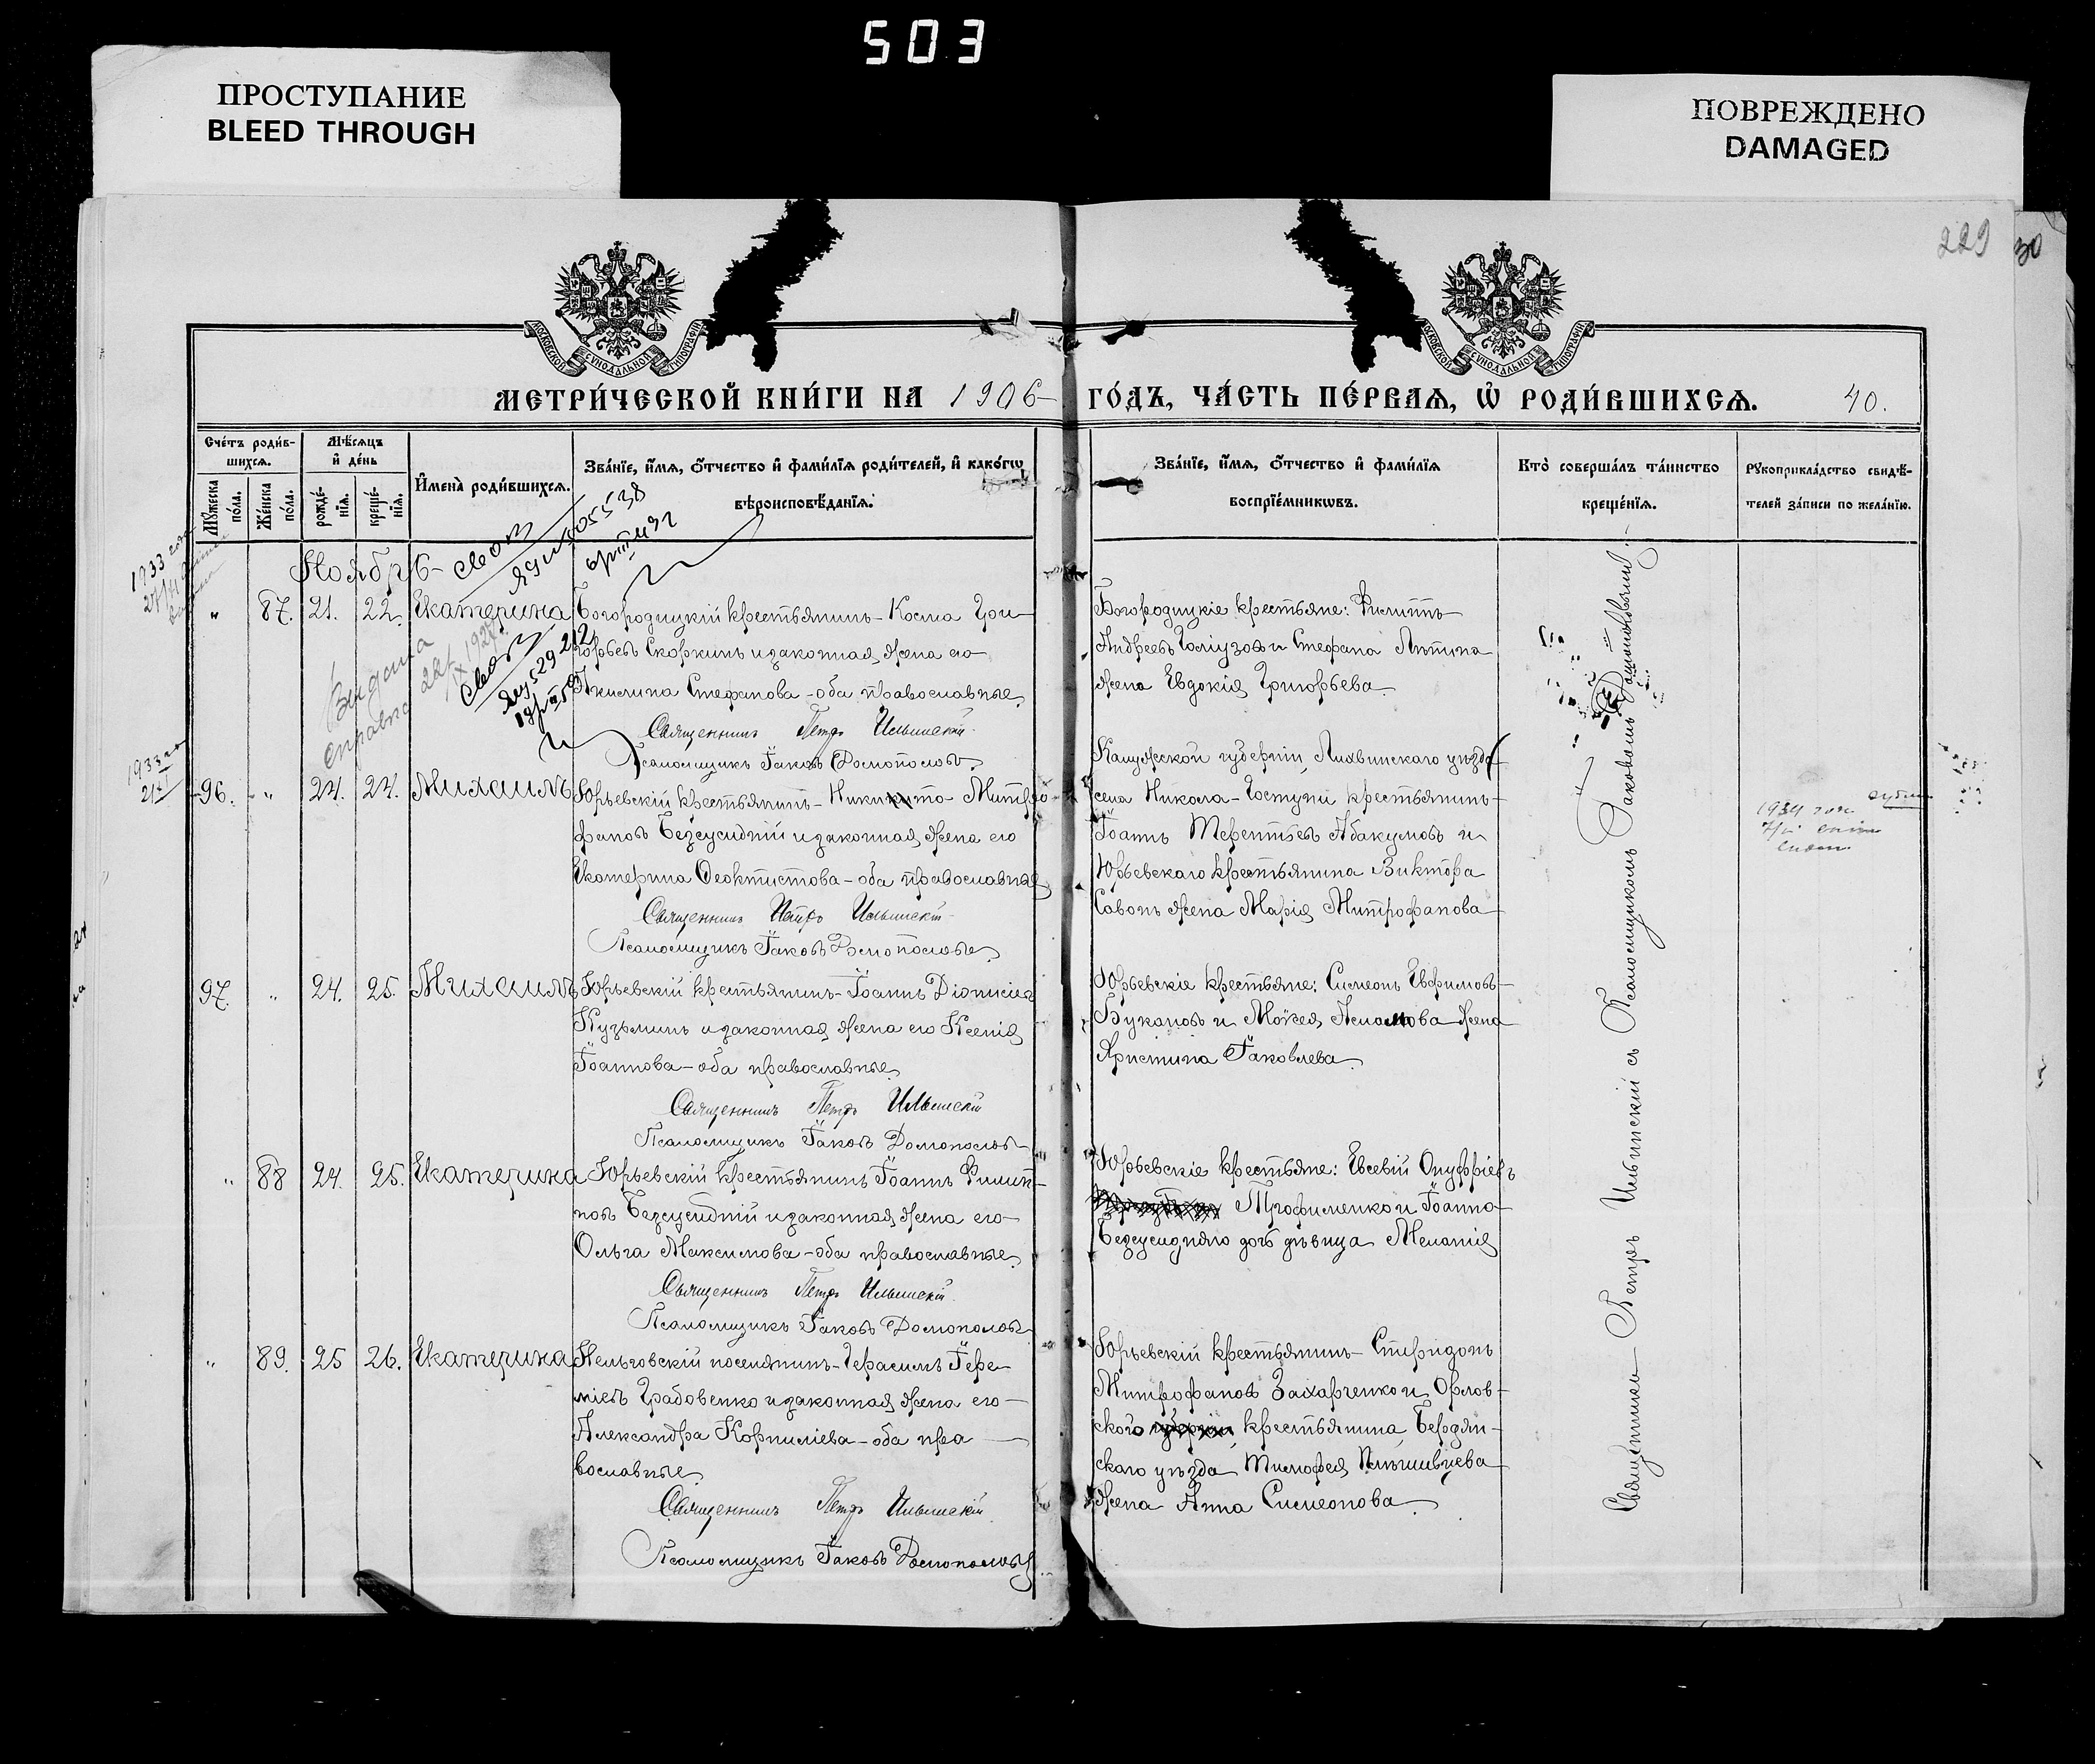 503
ПРОСТУПАНИЕ
BLEED THROUGH
ПОВРЕЖДЕНО
DAMAGED
229
30
МОСКОВСКОЙ СѴНОДАЛЬНОЙ ТИПОГРАФІИ
МОСКОВСКОЙ СѴНОДАЛЬНОЙ ТИПОГРАФІИ
МЕТРИ́ЧЕСКОЙ КНИ́ГИ НА 1906 ГО́ДЪ, ЧА́СТЬ ПЕ́РВАѦ, Ѡ҆ РОДИ́ВШИХСѦ. 40.
Сче́тъ роди́в-
шихсѧ.
Мѣ́сѧцъ
и҆ де́нь
Мꙋ́жеска по́ла.
Же́нска по́ла.
рожде́-
нїѧ.
креще́-
нїѧ.
И҆мена̀ роди́вшихсѧ.
Зва́нїе, и҆́мѧ, ѻ҆́тчество и҆ фами́лїѧ роди́телей, и҆ како́гѡ
вѣроисповѣ́данїѧ.
Зва́нїе, и҆́мѧ, ѻ҆́тчество и҆ фами́лїѧ
воспрїе́мникѡвъ.
Кто̀ соверша́лъ та́инство
креще́нїѧ.
Рꙋкоприкла́дство свидѣ́-
телей за́писи по жела́нїю.
Ноябрь
1933 года
" 87. 21. 22. Екатерина
Богородицкій крестьянинъ - Косма Гри-
горьевъ Скоркинъ и законная жена его
Акилина Стефанова - оба православные
Священникъ Петръ Ильинскій
Псаломщикъ Іаковъ
Богородицкіе крестьяне: Филиппъ
Андреевъ и Стефана Лапина
жена Евдокія Григорьева
Выдана
справка 22/IX 192
1933
96. " 24. 24. Михаилъ
Юрьевскій крестьянинъ - Никита Митро-
фановъ Безсудній и законная жена его
Екатерина Феоктистова - оба православные
Священникъ Петръ Ильинскій
Псаломщикъ Іаковъ
Калужской губерніи, Лихвинскаго уезда
села Никола-Гостуни крестьянинъ
Іоаннъ Терентьевъ Абакумовъ и
Юрьевскаго крестьянина Виктора
жена Марія Митрофанова
97. " 24. 25. Михаилъ
Юрьевскій крестьянинъ - Іоаннъ Діонисіевъ
Кузьминъ и законная жена его Ксенія
Іоаннова - оба православные
Священникъ Петръ Ильинскій
Псаломщикъ Іаковъ
Юрьевскіе крестьяне: Симеонъ Евфимовъ
Букановъ и Мокея жена
Христина Іаковлева
" 88 24. 25. Екатерина
Юрьевскій крестьянинъ Іоаннъ Филип-
повъ Безсудній и законная жена его
Ольга Максимова - оба православные
Священникъ Петръ Ильинскій
Псаломщикъ Іаковъ
Юрьевскіе крестьяне: Евсевій Онуфріевъ
Трофименко и Іоанна
Безсудняго дочь девица Меланія
" 89. 25 26. Екатерина
поселянинъ - Герасимъ Іере-
міевъ Грабовенко и законная жена его
Александра Корниліева - оба пра-
вославные
Священникъ Петръ Ильинскій
Псаломщикъ Іаковъ
Юрьевскій крестьянинъ - Спиридонъ
Митрофановъ Захарченко и Орлов-
ского крестьянина, Бердян-
скаго уезда Тимофея
жена Анна Симеонова
Священникъ Петръ Ильинскій съ Псаломщикомъ Іаковомъ